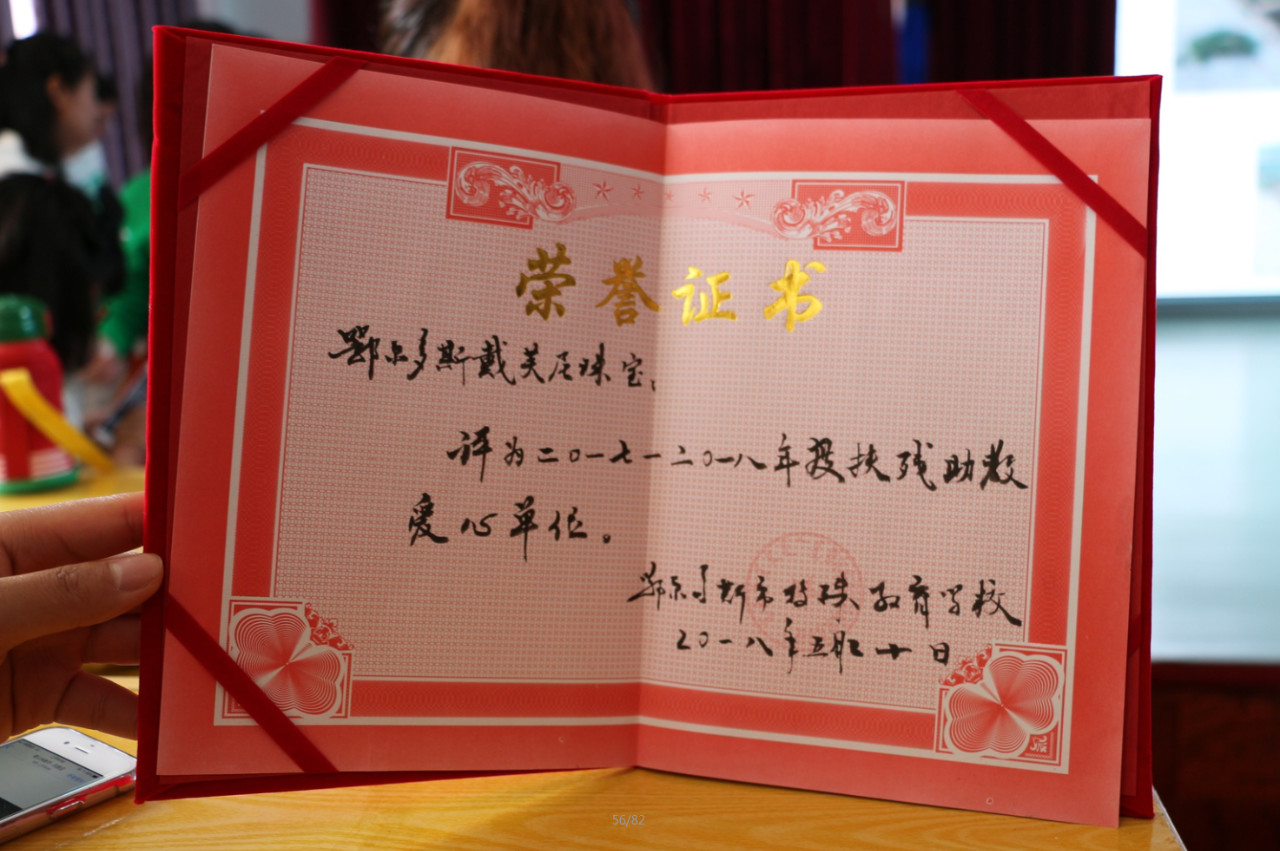 荣誉证书
鄂尔多斯戴芙尼珠宝:
评为二〇一七一二〇一八年度扶残助教
爱心单位。
鄂尔多斯市特殊教育学校
二〇一八年五月二十日
56/82